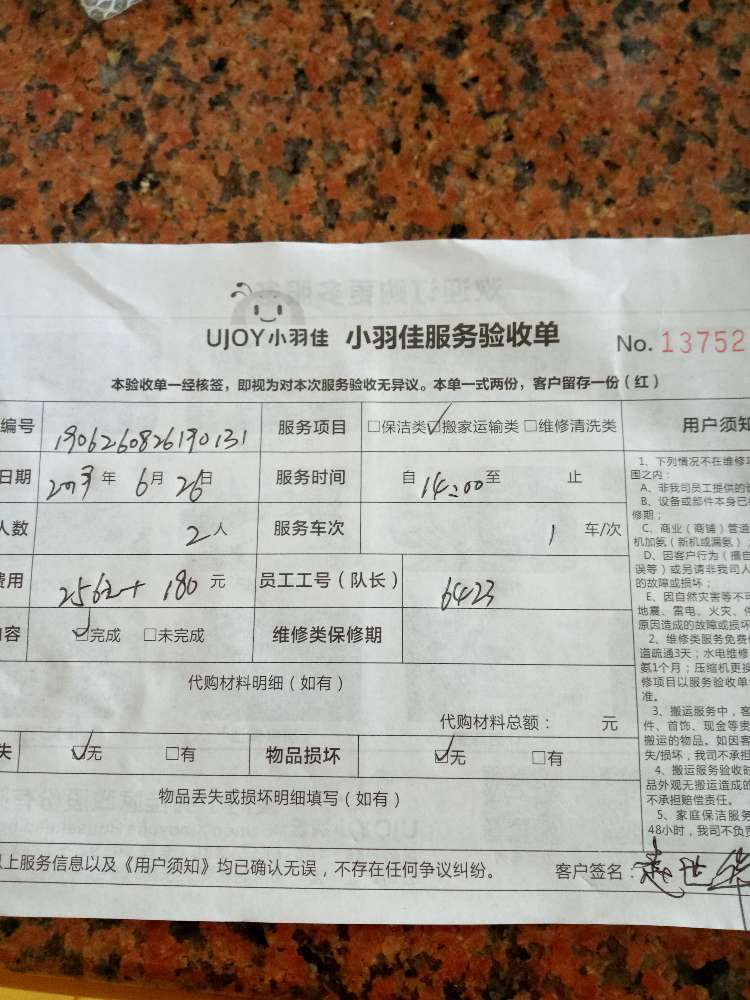 UJOY小羽佳 小羽佳服务验收单 No. 13752
本验收单一经核签，即视为对本次服务验收无异议。本单一式两份，客户留存一份（红）
编号 1906260826190131 服务项目 □保洁类 ☑搬家运输类 □维修清洗类 用户须知
日期 2019年 6月 26日 服务时间 自 14:00 至 止
人数 2人 服务车次 1 车/次
费用 256元+180元 员工工号（队长） 6423
内容 ☑完成 □未完成 维修类保修期
代购材料明细（如有）
代购材料总额： 元
失 ☑无 □有 物品损坏 ☑无 □有
物品丢失或损坏明细填写（如有）
以上服务信息以及《用户须知》均已确认无误，不存在任何争议纠纷。 客户签名：赵世华
1、下列情况不在维修
围之内：
A、非我司员工提供的
B、设备或部件本身已
修期；
C、商业（商铺）管道
机加氨（新机或漏氨）
D、因客户行为（擅自
误等）或另请非我司人
的故障或损坏；
E、因自然灾害等不可
地震、雷电、火灾、
原因造成的故障或损坏
2、维修类服务免费
道疏通3天；水电维修
氨1个月；压缩机更换
修项目以服务验收单
准。
3、搬运服务中，客
件、首饰、现金等贵
搬运的物品。如因客
失/损坏，我司不承担
4、搬运服务验收时
品外观无搬运造成的
不承担赔偿责任。
5、家庭保洁服务
48小时，我司不负责